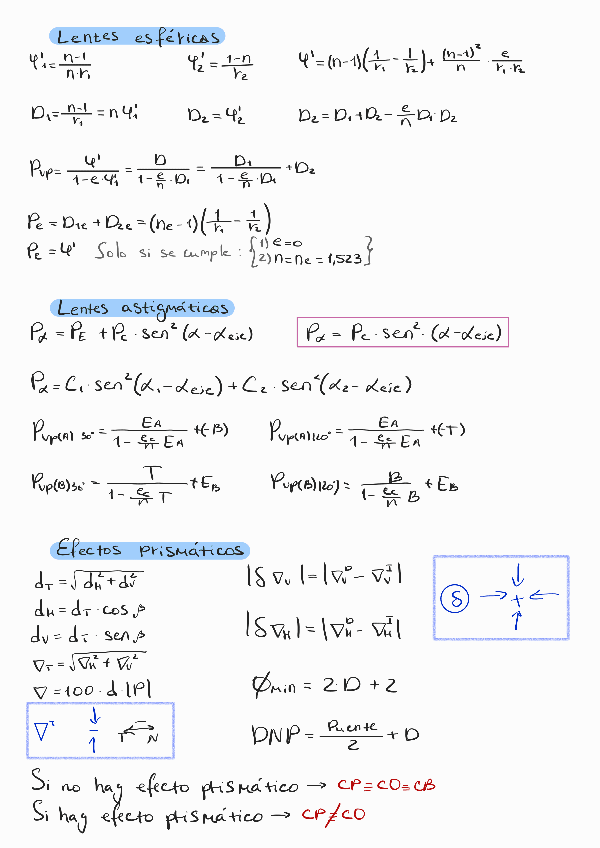 Lentes esféricas
φ'₁ = (n-1)/(n·r₁)    φ'₂ = (1-n)/r₂    φ' = (n-1)(1/r₁ - 1/r₂) + (n-1)²/n · e/(r₁·r₂)
D₁ = (n-1)/r₁ = n φ'₁    D₂ = φ'₂    D₂ = D₁ + D₂ - e/n D₁·D₂
Pvp = φ'/(1-e·φ'₁) = D/(1 - e/n · D₁) = D₁/(1 - e/n · D₁) + D₂
Pe = D₁e + D₂e = (ne-1)(1/r₁ - 1/r₂)
Pe = φ' Solo si se cumple: {1) e=0
2) n=ne=1,523}
Lentes astigmáticas
Pα = PE + Pc · sen² (α-αeje)    Pα = Pc · sen² · (α-αeje)
Pα = C₁ · sen² (α₁-αeje) + C₂ · sen² (α₂-αeje)
Pvp(A) 30° = EA/(1 - ec/n EA) + (B)    Pvp(A)120° = EA/(1 - ec/n EA) + (T)
Pvp(B)30° = T/(1 - ec/n T) + EB    Pvp(B)120°) = B/(1 - ec/n B) + EB
Efectos prismáticos
dT = √(dH² + dV²)    |δ∇V| = |∇V^D - ∇V^I|    δ → + ←
dH = dT · cos β
dV = dT · sen β    |δ∇H| = |∇H^D - ∇H^I|
∇T = √(∇H² + ∇V²)
∇ = 100 · d · |P|    Ømin = 2·D + 2
∇    T N    DNP = Puente/2 + D
Si no hay efecto prismático → CP ≡ CO ≡ CB
Si hay efecto prismático → CP ≠ CO